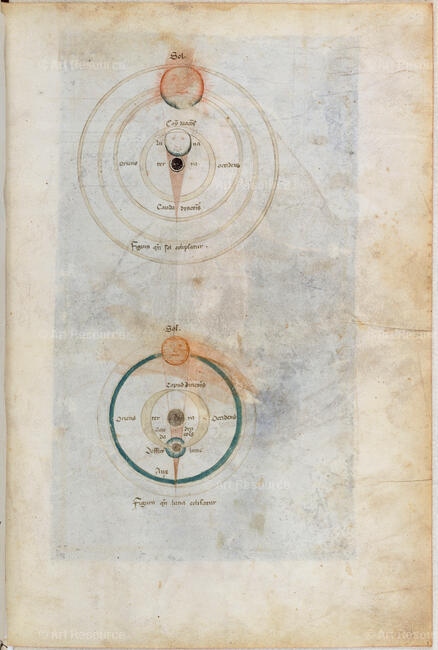 © Art Resource
© Art Resource
Sol.
lu na
oriens ter ra occidens
Cauda draconis
Figura qn sol eclipsatur.
© Art Resource
© Art Resource
Sol.
Caput draconis
Oriens ter ra Occidens
Cau dra
da
lune
Aux
Figura qn luna eclipsatur
© Art Resource
© Art Resource